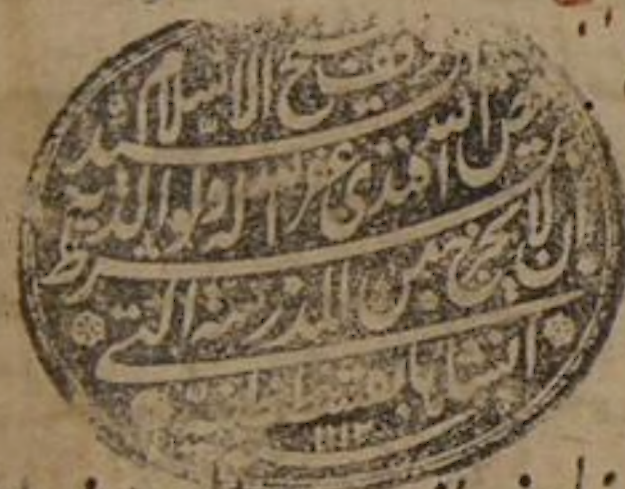 وقف شيخ الاسلام السيد
فيض الله افندى غفر الله له ولوالديه
بشرط ان لا يخرج من المدرسة التى
انشاها بقسطنطينية